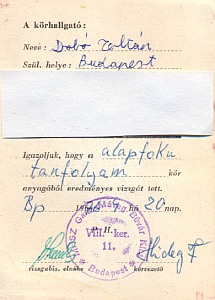 A körhallgató:
Neve: Dobó Zoltán
Szül. helye: Budapest
Igazoljuk, hogy a alapfoku
tanfolyam kör
anyagából eredményes vizsgát tett.
Bp 20 nap.
P. H.
VIII. ker.
11.
Budapest
Hideg F
vizsgabiz. elnöke körvezető